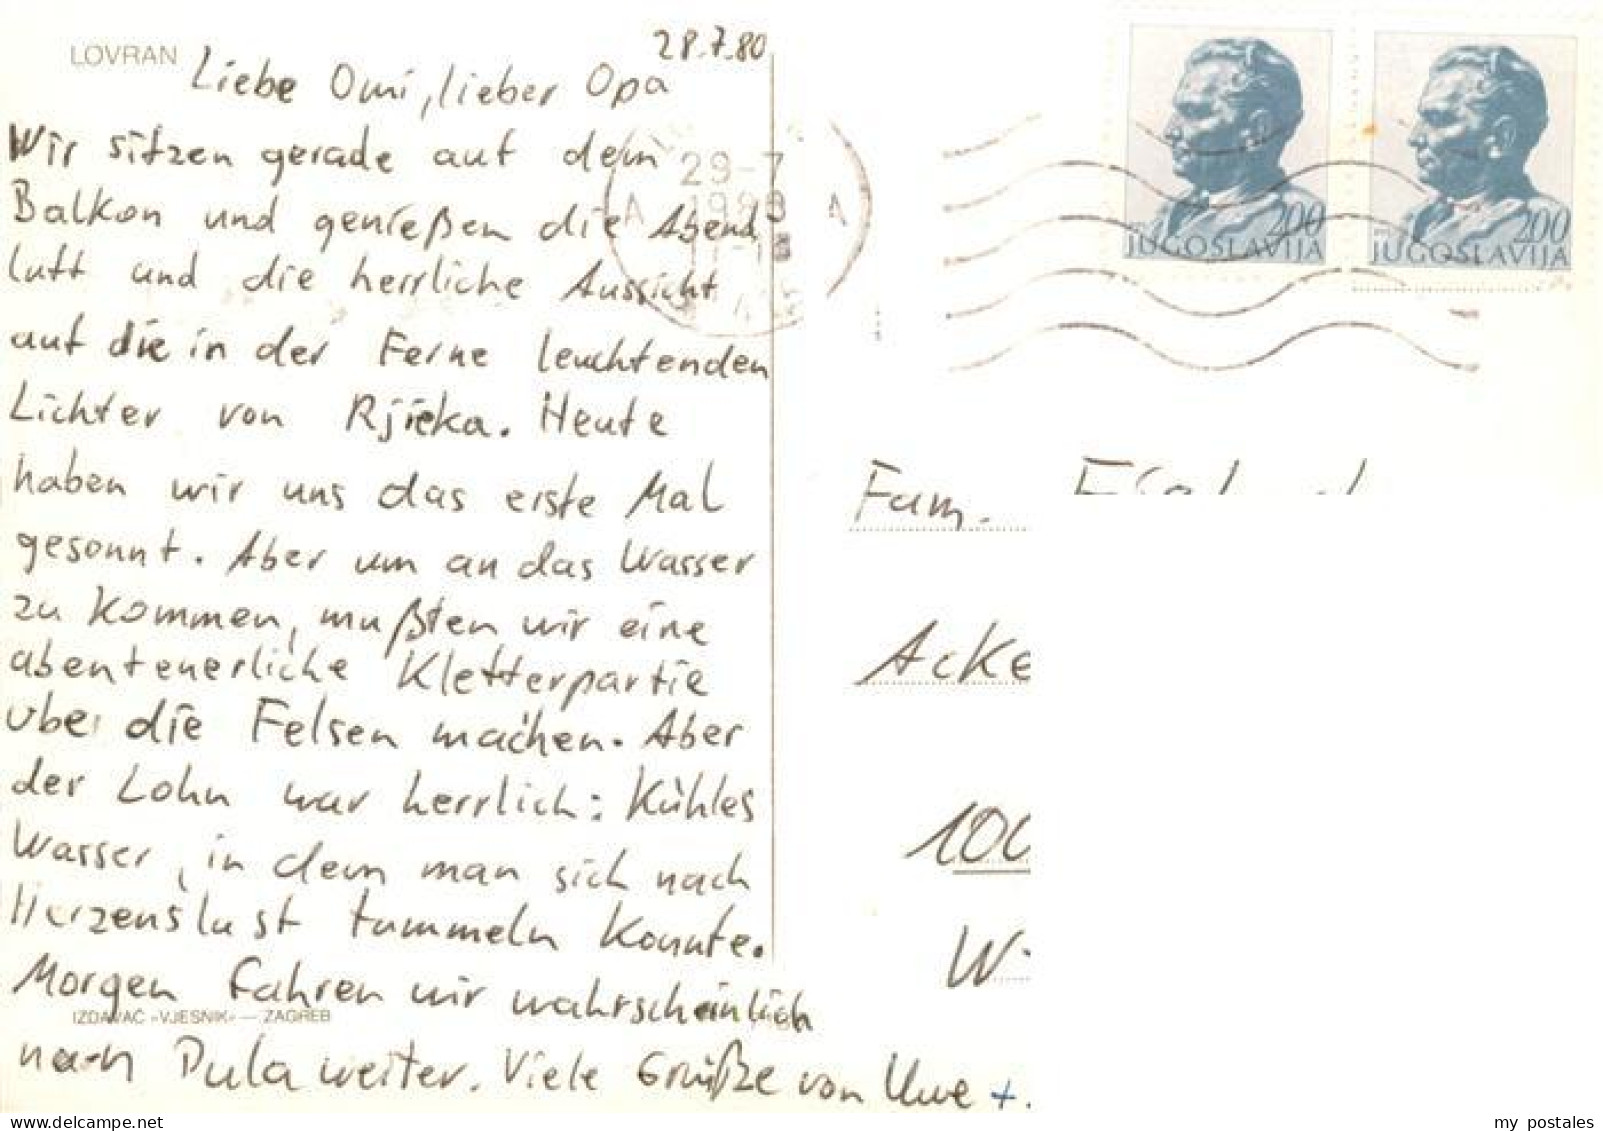 LOVRAN
28.7.80
Liebe Omi, lieber Opa
Wir sitzen gerade auf dem
Balkon und genießen die Abend
luft und die herrliche Aussicht
auf die in der Ferne leuchtenden
Lichter von Rjieka. Heute
haben wir uns das erste Mal
gesonnt. Aber um an das Wasser
zu kommen, mußten wir eine
abenteuerliche Kletterpartie
über die Felsen machen. Aber
der Lohn war herrlich: Kühles
Wasser, in dem man sich nach
Herzenslust tummeln konnte.
Morgen fahren wir wahrscheinlich
IZDAVAČ »VJESNIK« — ZAGREB
nach Pula weiter. Viele Grüße von Uwe +.
29-7
200
JUGOSLAVIJA
200
JUGOSLAVIJA
Fam.
Acke
100
W
my postales